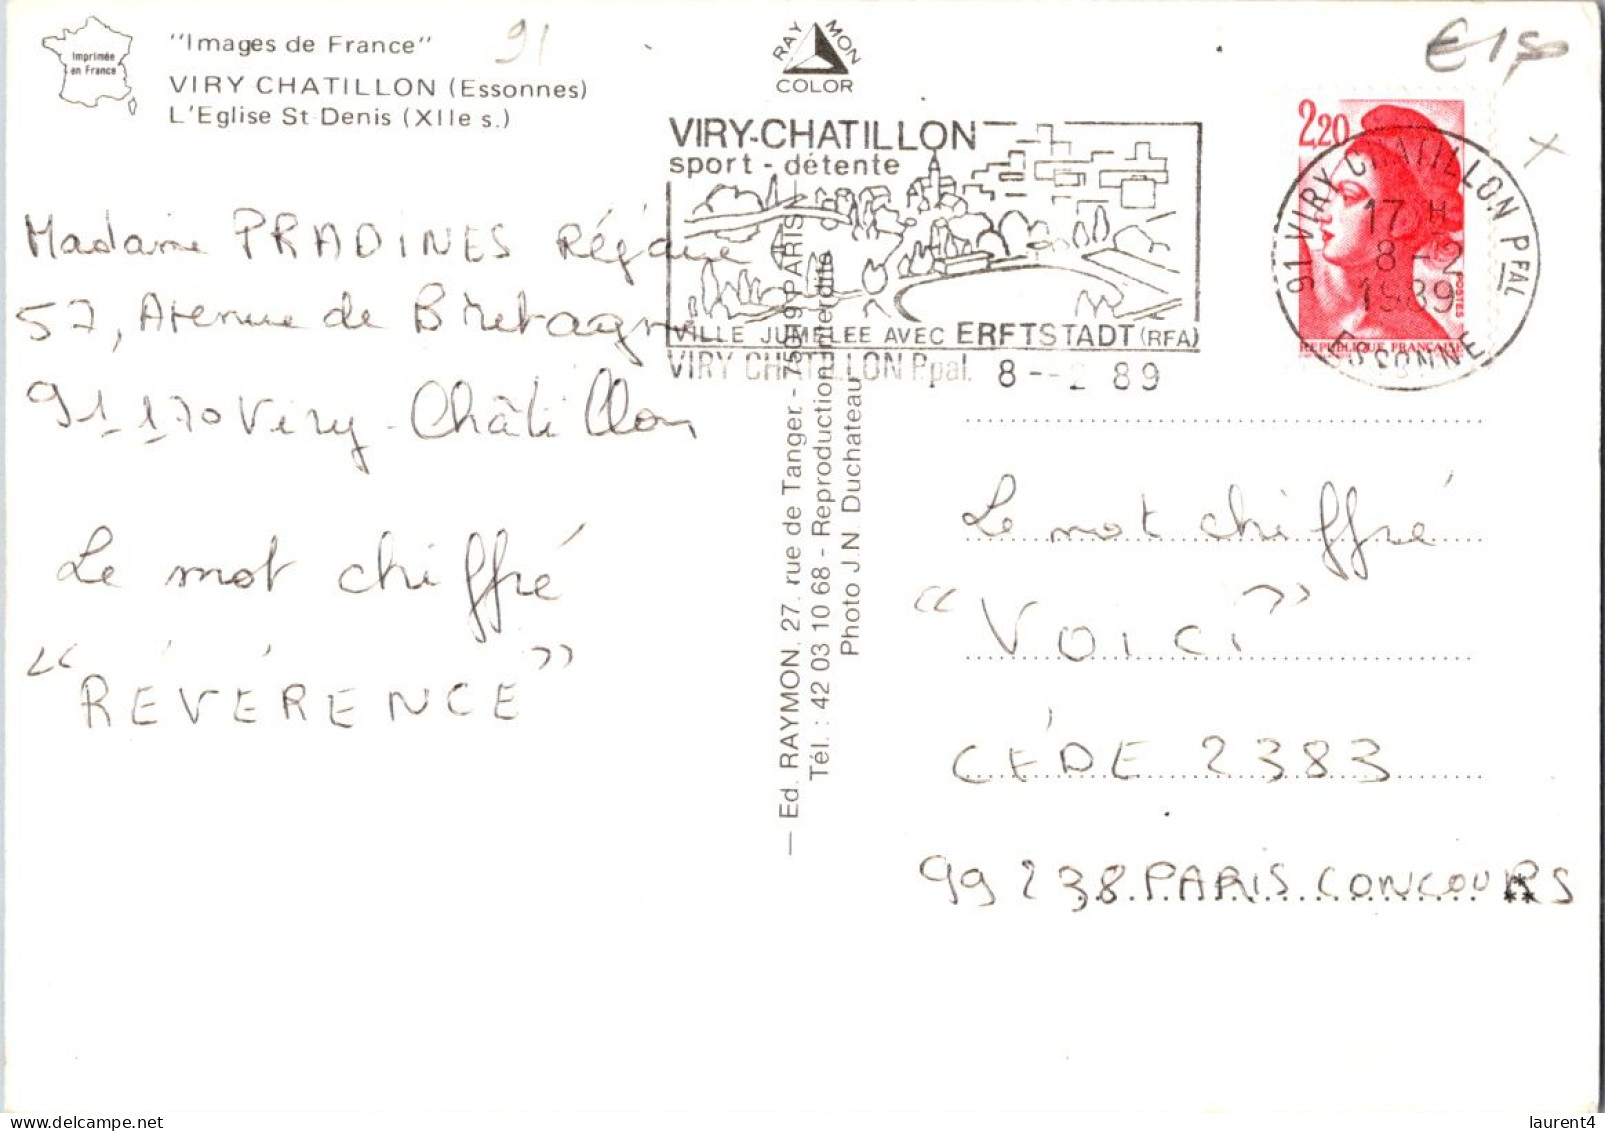 Imprimée
en France
"Images de France"
VIRY CHATILLON (Essonnes)
L'Eglise St-Denis (XIIe s.)
91
RAYMON
COLOR
VIRY-CHATILLON
sport - détente
VILLE JUMELEE AVEC ERFTSTADT (RFA)
VIRY CHATILLON Ppal. 8 -- 2 89
2,20
POSTES
REPUBLIQUE FRANÇAISE
91 VIRY CHATILLON PPAL
17 H
8 - 2
1989
ESSONNE
Madame PRADINES Réjane
57, Avenue de Bretagne
91170 Viry-Châtillon
Le mot chiffré
"RÉVÉRENCE"
— Ed. RAYMON, 27, rue de Tanger - 75019 PARIS
Tél. : 42 03 10 68 - Reproduction interdite
Photo J.N. Duchateau
Le mot chiffré
"VOICI"
CÉDE 2383
99 238 PARIS CONCOURS
laurent4